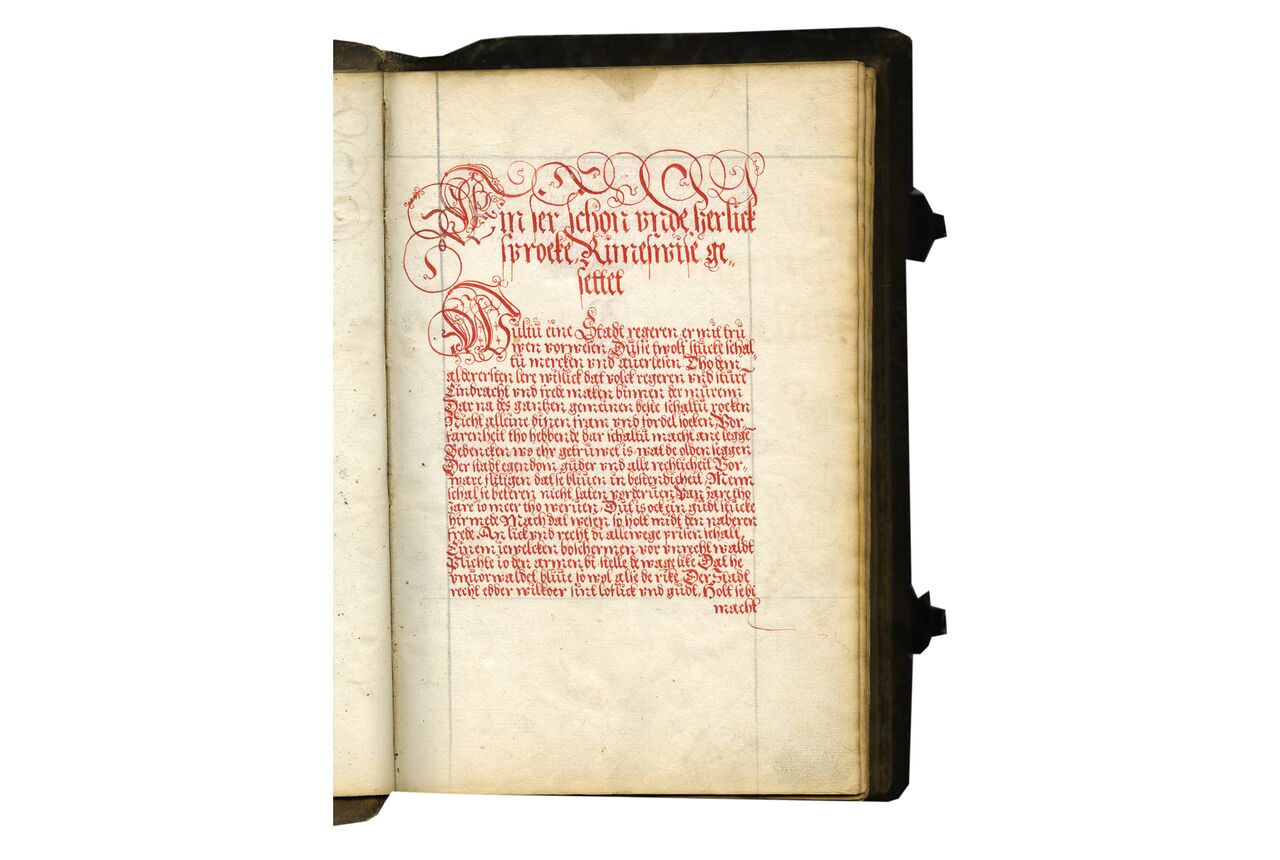 Ein ser schon vnde herlick
sproeke, Rimeswise ge„
settet
Wiltu eine Stadt regeren er mit trü
wen vorwesen Düsse twolf stücke schal„
tü mercken vnd auerlesen Tho dem
alderersten lere wislick dat volck regeren vnd stüre
Eindracht vnd frede maken binnen der müren
Dar na des gantzen gemeinen beste schaltü roeken
Nicht alleine dinen fram vnd fordel soeken, Vor„
farenheit tho hebbende dar schaltü macht ane leggē
Bedencken wo ehr getruwet is wal de olden seggen
Der stadt egendom güder vnd alle rechticheit Vor„
ware flitigen dat se bliuen in bestendicheit Menn
schal se beteren nicht laten vorderuen Van Jare tho
Jare io meer tho weruen, Düt is ock ein gudt stücke
hirmede Mach dat wesen so holt midt den naberen
frede. An lick vnd recht di allewege prisen schalt
Einem jewelcken beschermen vor vnrecht waldt
Plichte io den armen bi stelle de wage like Dat he
vnuorwaldet bliue so wol alse de rike Der Stadt
recht edder wilkoer sint loflick vnd gudt, Holt se bi
macht